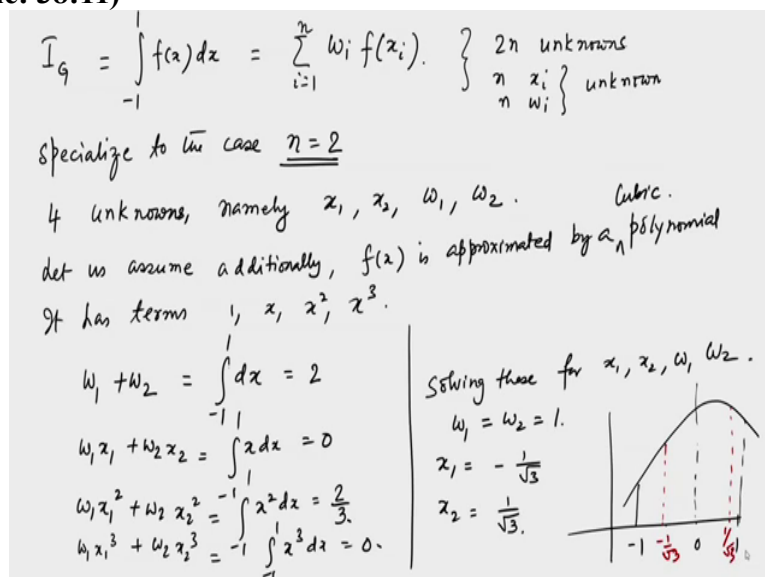 I_G = ∫_{-1}^{1} f(x) dx = Σ_{i=1}^{n} w_i f(x_i). } 2n unknowns
n x_i
n w_i } unknown
Specialize to the case n = 2
4 unknowns, namely x_1, x_2, w_1, w_2.
Cubic.
let us assume additionally, f(x) is approximated by a ∧ polynomial
It has terms 1, x, x^2, x^3.
w_1 + w_2 = ∫_{-1}^{1} dx = 2
w_1 x_1 + w_2 x_2 = ∫_{-1}^{1} x dx = 0
w_1 x_1^2 + w_2 x_2^2 = ∫_{-1}^{1} x^2 dx = 2/3.
w_1 x_1^3 + w_2 x_2^3 = ∫_{-1}^{1} x^3 dx = 0.
Solving these for x_1, x_2, w_1 w_2.
w_1 = w_2 = 1.
x_1 = - 1/√3
x_2 = 1/√3.
-1 -1/√3 0 1/√3 1